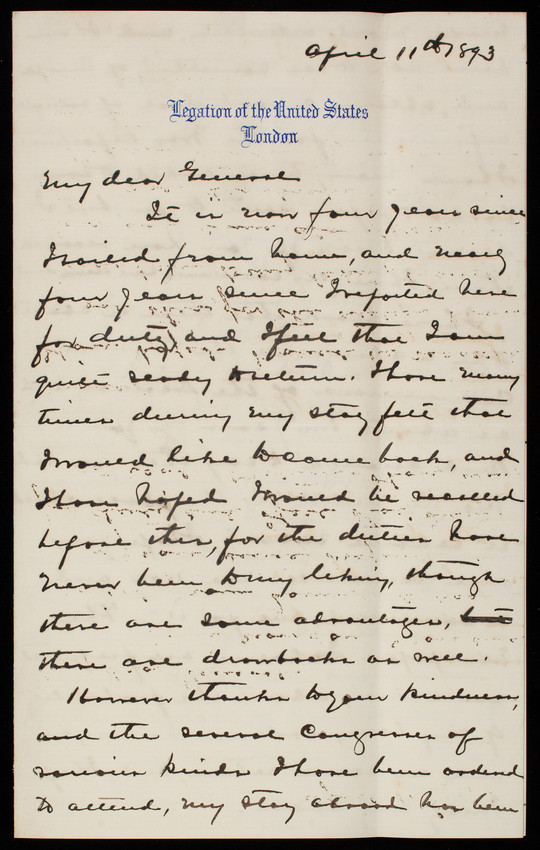 April 11th 1893
Legation of the United States
London
My dear General
It is now four years since
I sailed from home, and nearly
four years since I reported here
for duty, and I feel that I am
quite ready to return. I have many
times during my stay felt that
I would like to come back, and
I have hoped I would be recalled
before this, for the duties have
never been to my liking, though
there are some advantages, but
there are drawbacks as well.
However thanks to your kindness,
and the several Congresses of
various kinds I have been ordered
to attend, my stay abroad has been